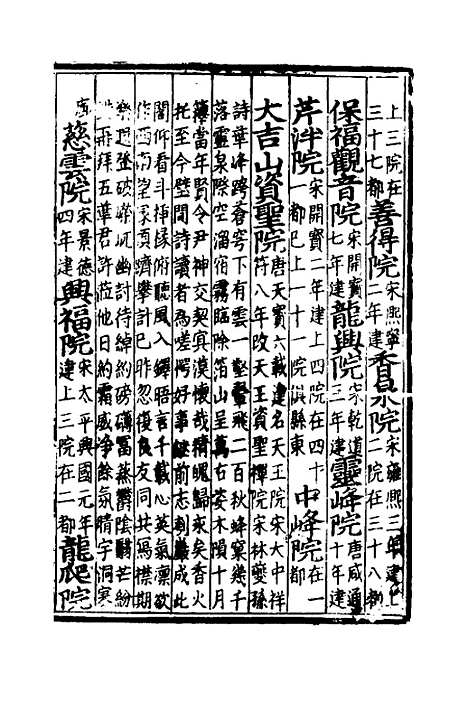 上三院在三十七都善得院宋熙寧二年建香泉院宋雍熙二年建上二院在三十八都
保福觀音院宋開寶七年建龍興院宋乾道三年建靈峰院唐咸通十年建
芹泮院宋開寶二年建上四院在四十一都已上一十一院縣東中峰院在一都
大吉山資聖院唐天寶六載建名天王院宋大中祥符八年改天王資聖禪院宋林孫
詩華峰跨香穹下有雲一壑鷩飛二百秋蜂窠幾千
落靈泉際空溜宿霧臨除箔山呈萬古姿木隕十月
籜當年賢令尹神交契寘漠懷哉精魄歸求矣香火
托至今壁間詩讀者為嗟愕好事繼前志刻成此
閣仰看斗挿椽俯聽風入鐸晤言千載心英氣凜欲
作西南望濟攀計已昨忽復良友同共為襟期
樂強破碎屼幽討待綽約磅礴冨蒸鬱陰翳芒紛
拜五華君許蒞他日約霜威凈餘氛晴宇洞寒
慈雲院宋景德四年建興福院宋太平興國元年建上三院在二都龍爬院